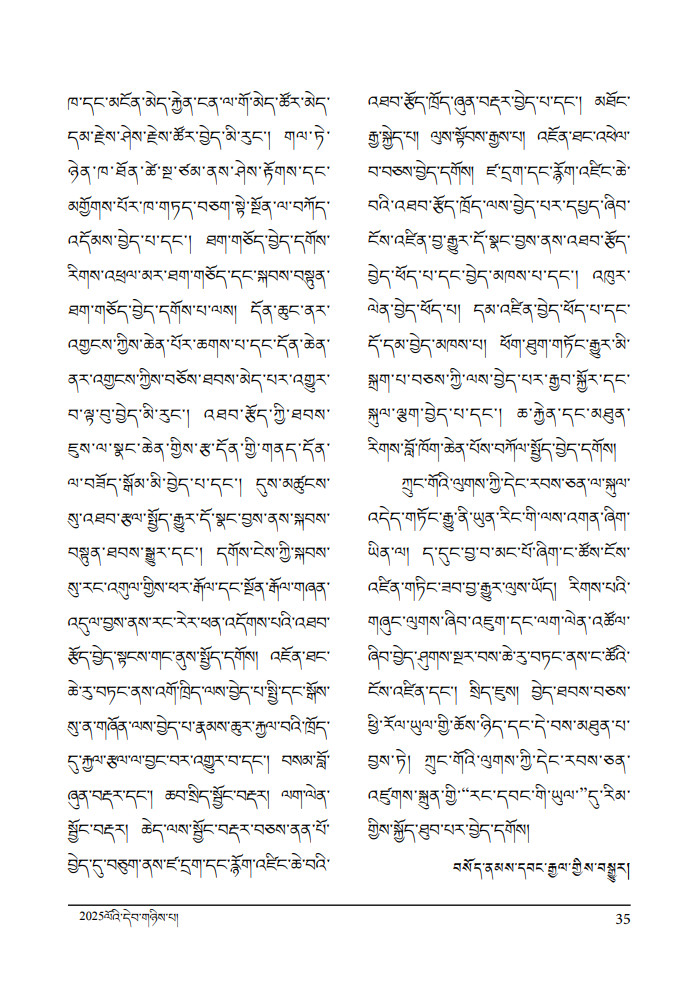 ཁ་དང་མངོན་མེད་རྐྱེན་ངན་ལ་གོ་མེད་ཚོར་མེད་
དམ་རྗེས་ཤེས་རྗེས་ཚོར་བྱེད་མི་རུང་། གལ་ཏེ་
ཉེན་ཁ་ཐོན་ཚེ་སྔ་ཙམ་ནས་ཤེས་རྟོགས་དང་
མགྱོགས་པོར་ཁ་གཏད་བཅག་སྟེ་སྔོན་ལ་བཀོད་
འདོམས་བྱེད་པ་དང་། ཐག་གཅོད་བྱེད་དགོས་
རིགས་འཕྲལ་མར་ཐག་གཅོད་དང་སྐབས་བསྟུན་
ཐག་གཅོད་བྱེད་དགོས་པ་ལས། དོན་ཆུང་ནར་
འགྱངས་ཀྱིས་ཆེན་པོར་ཆགས་པ་དང་དོན་ཆེན་
ནར་འགྱངས་ཀྱིས་བཅོས་ཐབས་མེད་པར་འགྱུར་
བ་ལྟ་བུ་བྱེད་མི་རུང་། འཐབ་རྩོད་ཀྱི་ཐབས་
ཇུས་ལ་སྣང་ཆེན་གྱིས་རྩ་དོན་གྱི་གནད་དོན་
ལ་བཟོད་སྒོམ་མི་བྱེད་པ་དང་། དུས་མཚུངས་
སུ་འཐབ་རྩལ་སྤྱོད་རྒྱུར་དོ་སྣང་བྱས་ནས་སྐབས་
བསྟུན་ཐབས་སྒྱུར་དང་། དགོས་ངེས་ཀྱི་སྐབས་
སུ་རང་འགུལ་གྱིས་ཕར་རྒོལ་དང་སྔོན་རྒོལ་གཞན་
འདུལ་བྱས་ནས་རང་རེར་ཕན་འདོགས་པའི་འཐབ་
རྩོད་བྱེད་སྟངས་གང་ནུས་སྤྱོད་དགོས། འཇོན་ཐང་
ཆེ་རུ་བཏང་ནས་འགོ་ཁྲིད་ལས་བྱེད་པ་སྤྱི་དང་སྒོས་
སུ་ན་གཞོན་ལས་བྱེད་པ་རྣམས་ཆུར་རྐྱལ་བའི་ཁྲོད་
དུ་རྐྱལ་རྩལ་ལ་བྱང་བར་འགྱུར་བ་དང་། བསམ་བློ་
ཞུན་བརྡར་དང་། ཆབ་སྲིད་སྦྱོང་བརྡར། ལག་ལེན་
སྦྱོང་བརྡར། ཆེད་ལས་སྦྱོང་བརྡར་བཅས་ནན་པོ་
བྱེད་དུ་བཅུག་ནས་ཛ་དྲག་དང་རྙོག་འཛིང་ཆེ་བའི་
འཐབ་རྩོད་ཁྲོད་ཞུན་བརྡར་བྱེད་པ་དང་། མཐོང་
རྒྱ་སྐྱེད་པ། ལུས་སྟོབས་རྒྱས་པ། འཇོན་ཐང་འཕེལ་
བ་བཅས་བྱེད་དགོས། ཛ་དྲག་དང་རྙོག་འཛིང་ཆེ་
བའི་འཐབ་རྩོད་ཁྲོད་ལས་བྱེད་པར་དཔྱད་ཞིབ་
ངོས་འཛིན་བྱ་རྒྱུར་དོ་སྣང་བྱས་ནས་འཐབ་རྩོད་
བྱེད་ཕོད་པ་དང་བྱེད་མཁས་པ་དང་། འཁུར་
ལེན་བྱེད་ཕོད་པ། དམ་འཛིན་བྱེད་ཕོད་པ་དང་
དོ་དམ་བྱེད་མཁས་པ། ཕོག་ཐུག་གཏོང་རྒྱུར་མི་
སྐྲག་པ་བཅས་ཀྱི་ལས་བྱེད་པར་རྒྱབ་སྐྱོར་དང་
སྐུལ་ལྕག་བྱེད་པ་དང་། ཆ་རྐྱེན་དང་མཐུན་
རིགས་བློ་ཁོག་ཆེན་པོས་བཀོལ་སྤྱོད་བྱེད་དགོས།
ཀྲུང་གོའི་ལུགས་ཀྱི་དེང་རབས་ཅན་ལ་སྐུལ་
འདེད་གཏོང་རྒྱུ་ནི་ཡུན་རིང་གི་ལས་འགན་ཞིག་
ཡིན་ལ། ད་དུང་བྱ་བ་མང་པོ་ཞིག་ང་ཚོས་ངོས་
འཛིན་གཏིང་ཟབ་བྱ་རྒྱུར་ལུས་ཡོད། རིགས་པའི་
གཞུང་ལུགས་ཞིབ་འཇུག་དང་ལག་ལེན་འཚོལ་
ཞིབ་བྱེད་ཤུགས་སྔར་བས་ཆེ་རུ་བཏང་ནས་ང་ཚོའི་
ངོས་འཛིན་དང་། སྲིད་ཇུས། བྱེད་ཐབས་བཅས་
ཕྱི་རོལ་ཡུལ་གྱི་ཆོས་ཉིད་དང་དེ་བས་མཐུན་པ་
བྱས་ཏེ། ཀྲུང་གོའི་ལུགས་ཀྱི་དེང་རབས་ཅན་
འཛུགས་སྐྲུན་གྱི་“རང་དབང་གི་ཡུལ་”དུ་རིམ་
གྱིས་སྐྱོད་ཐུབ་པར་བྱེད་དགོས།
བསོད་ནམས་དབང་རྒྱལ་གྱིས་བསྒྱུར།
2025ལོའི་དེབ་གཉིས་པ།
35